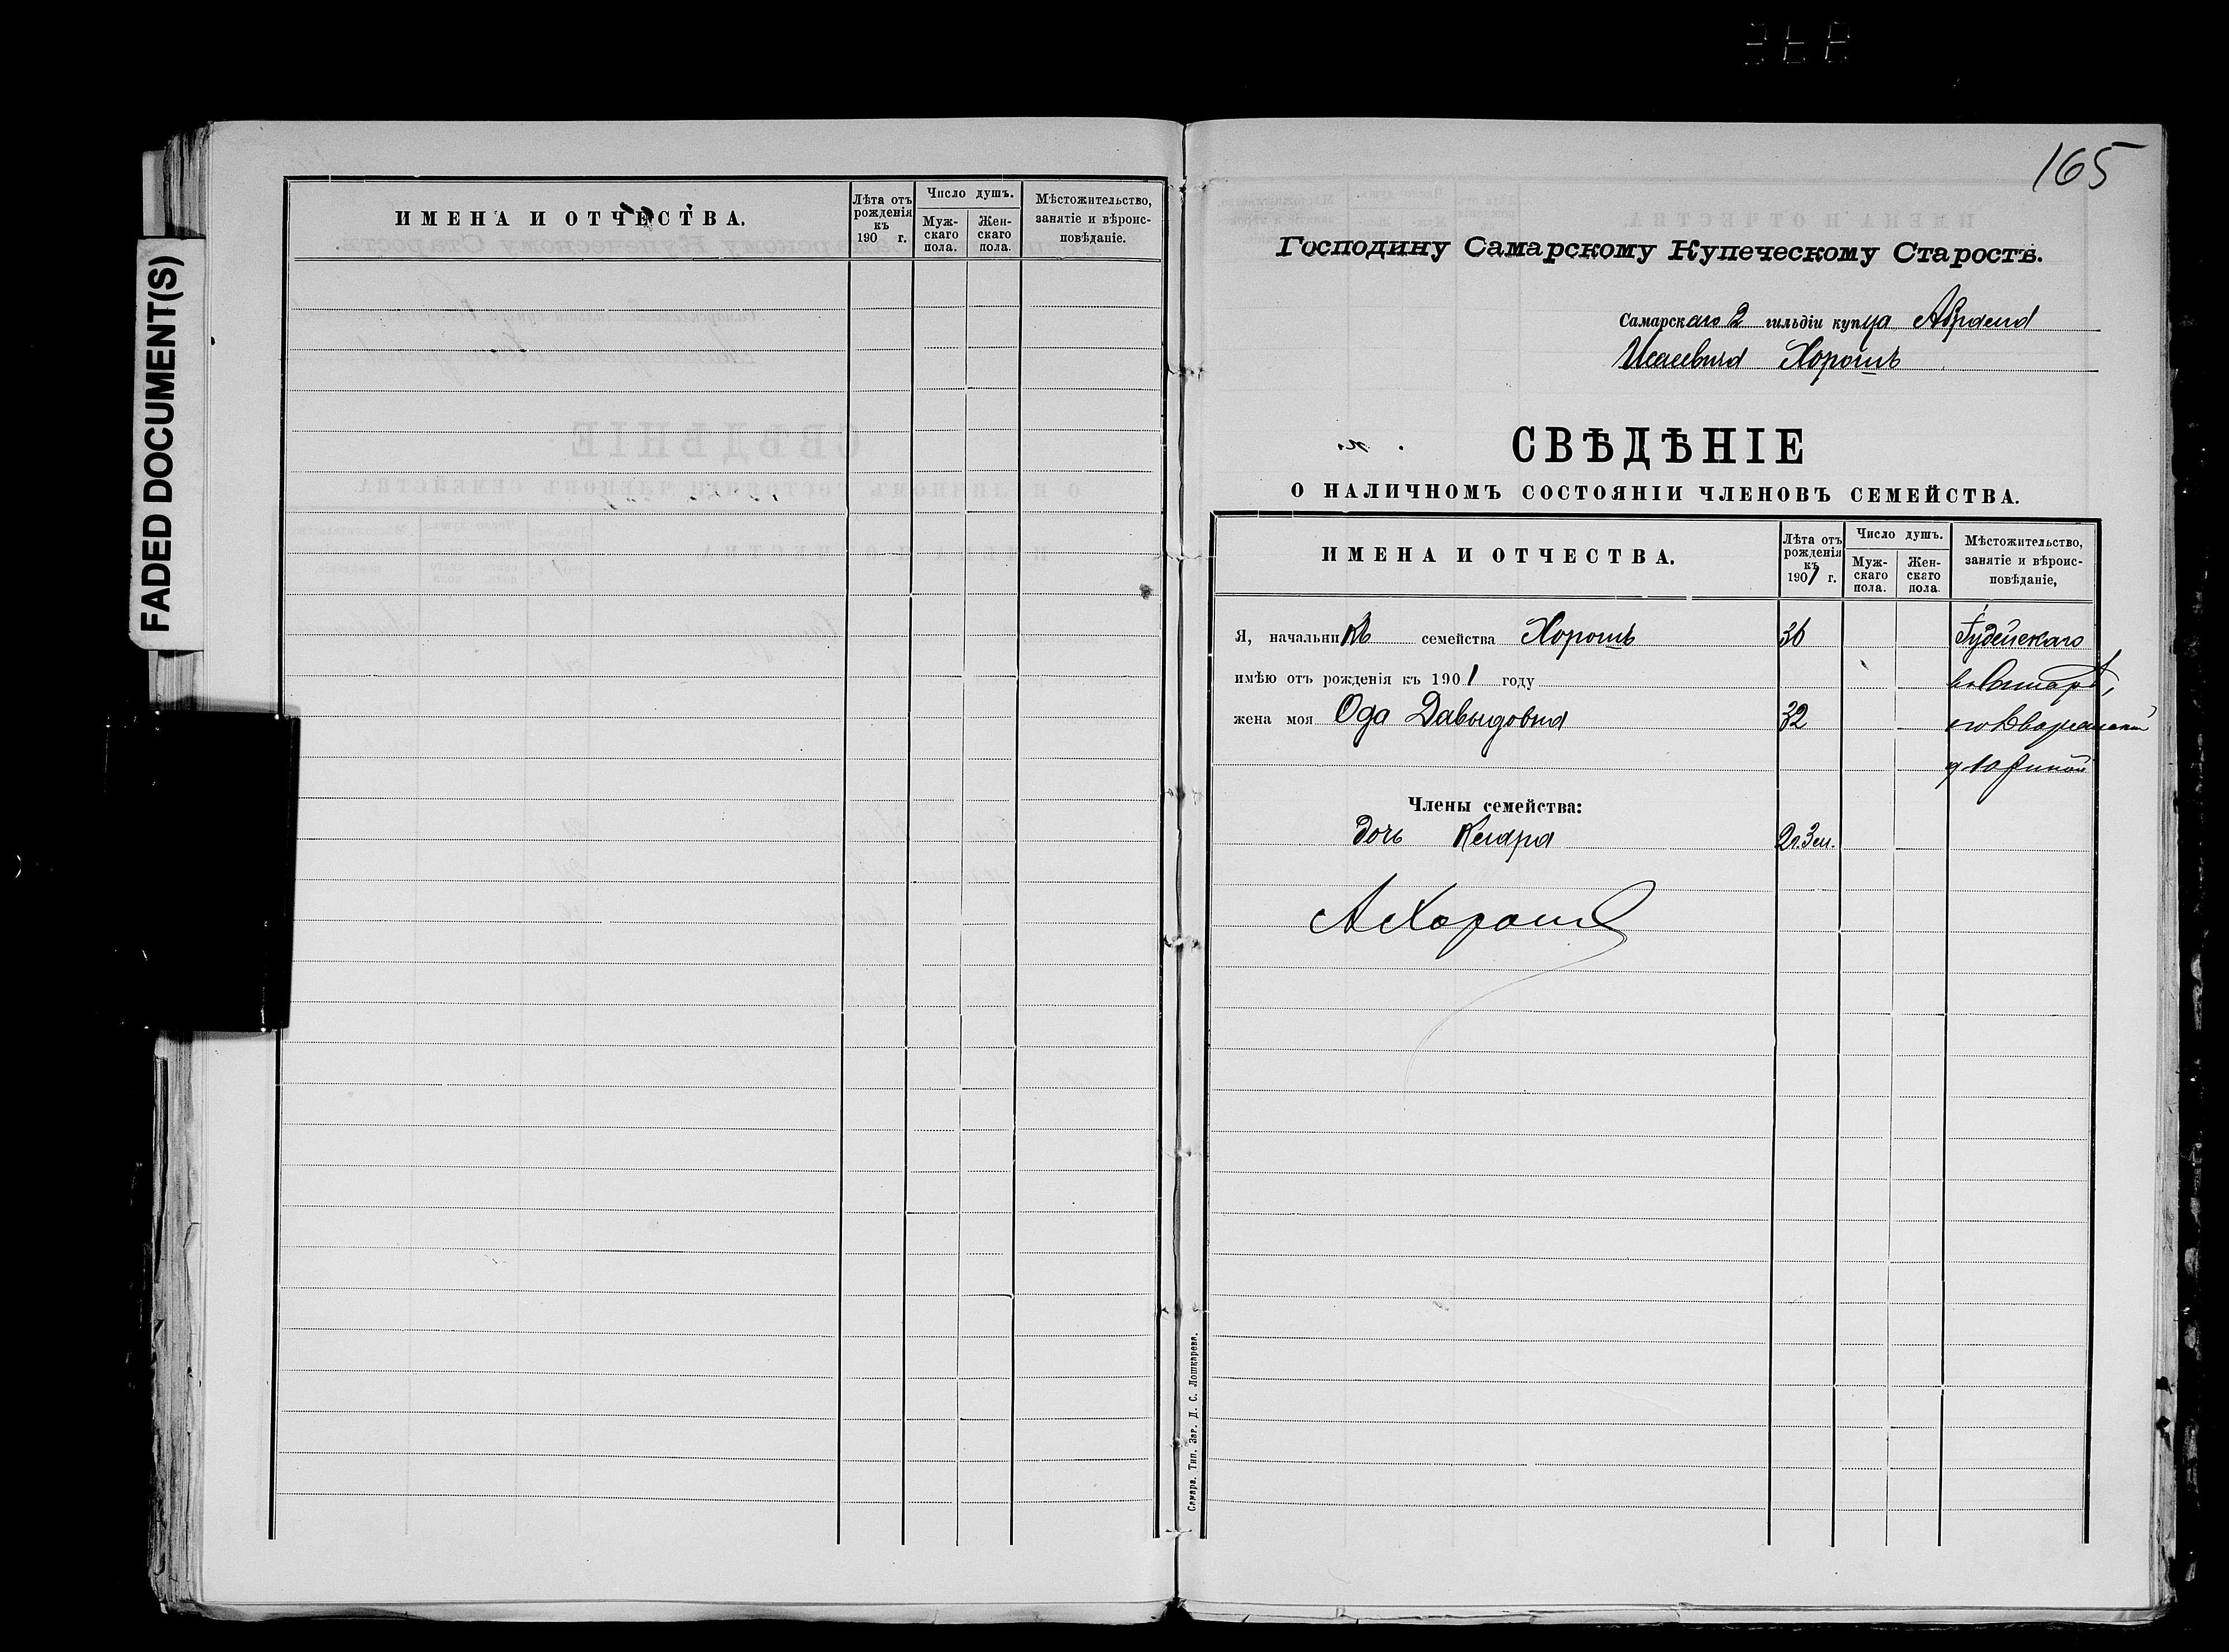 FADED DOCUMENT(S)
ИМЕНА И ОТЧЕСТВА.
Лѣта отъ рожденія къ 190 г.
Число душъ.
Мужскаго пола.
Женскаго пола.
Мѣстожительство, занятіе и вѣроисповѣданіе.
165
Господину Самарскому Купеческому Старостѣ.
Самарскаго 2 гильдіи купца Абрама
Исаевича Хорошъ
СВѢДѢНІЕ
О НАЛИЧНОМЪ СОСТОЯНІИ ЧЛЕНОВЪ СЕМЕЙСТВА.
ИМЕНА И ОТЧЕСТВА.
Лѣта отъ рожденія къ 1901 г.
Число душъ.
Муж-скаго пола.
Жен-скаго пола.
Мѣстожительство, занятіе и вѣроис-повѣданіе,
Я, начальникъ семейства Хорошъ 36 Іудейскаго
имѣю отъ рожденія къ 1901 году въ Самарѣ,
жена моя Ода Давыдовна 32
Члены семейства:
дочь 2г. 3 м.
АХорошъ
Самара. Тип. Зар. Д. С. Лошкарева.